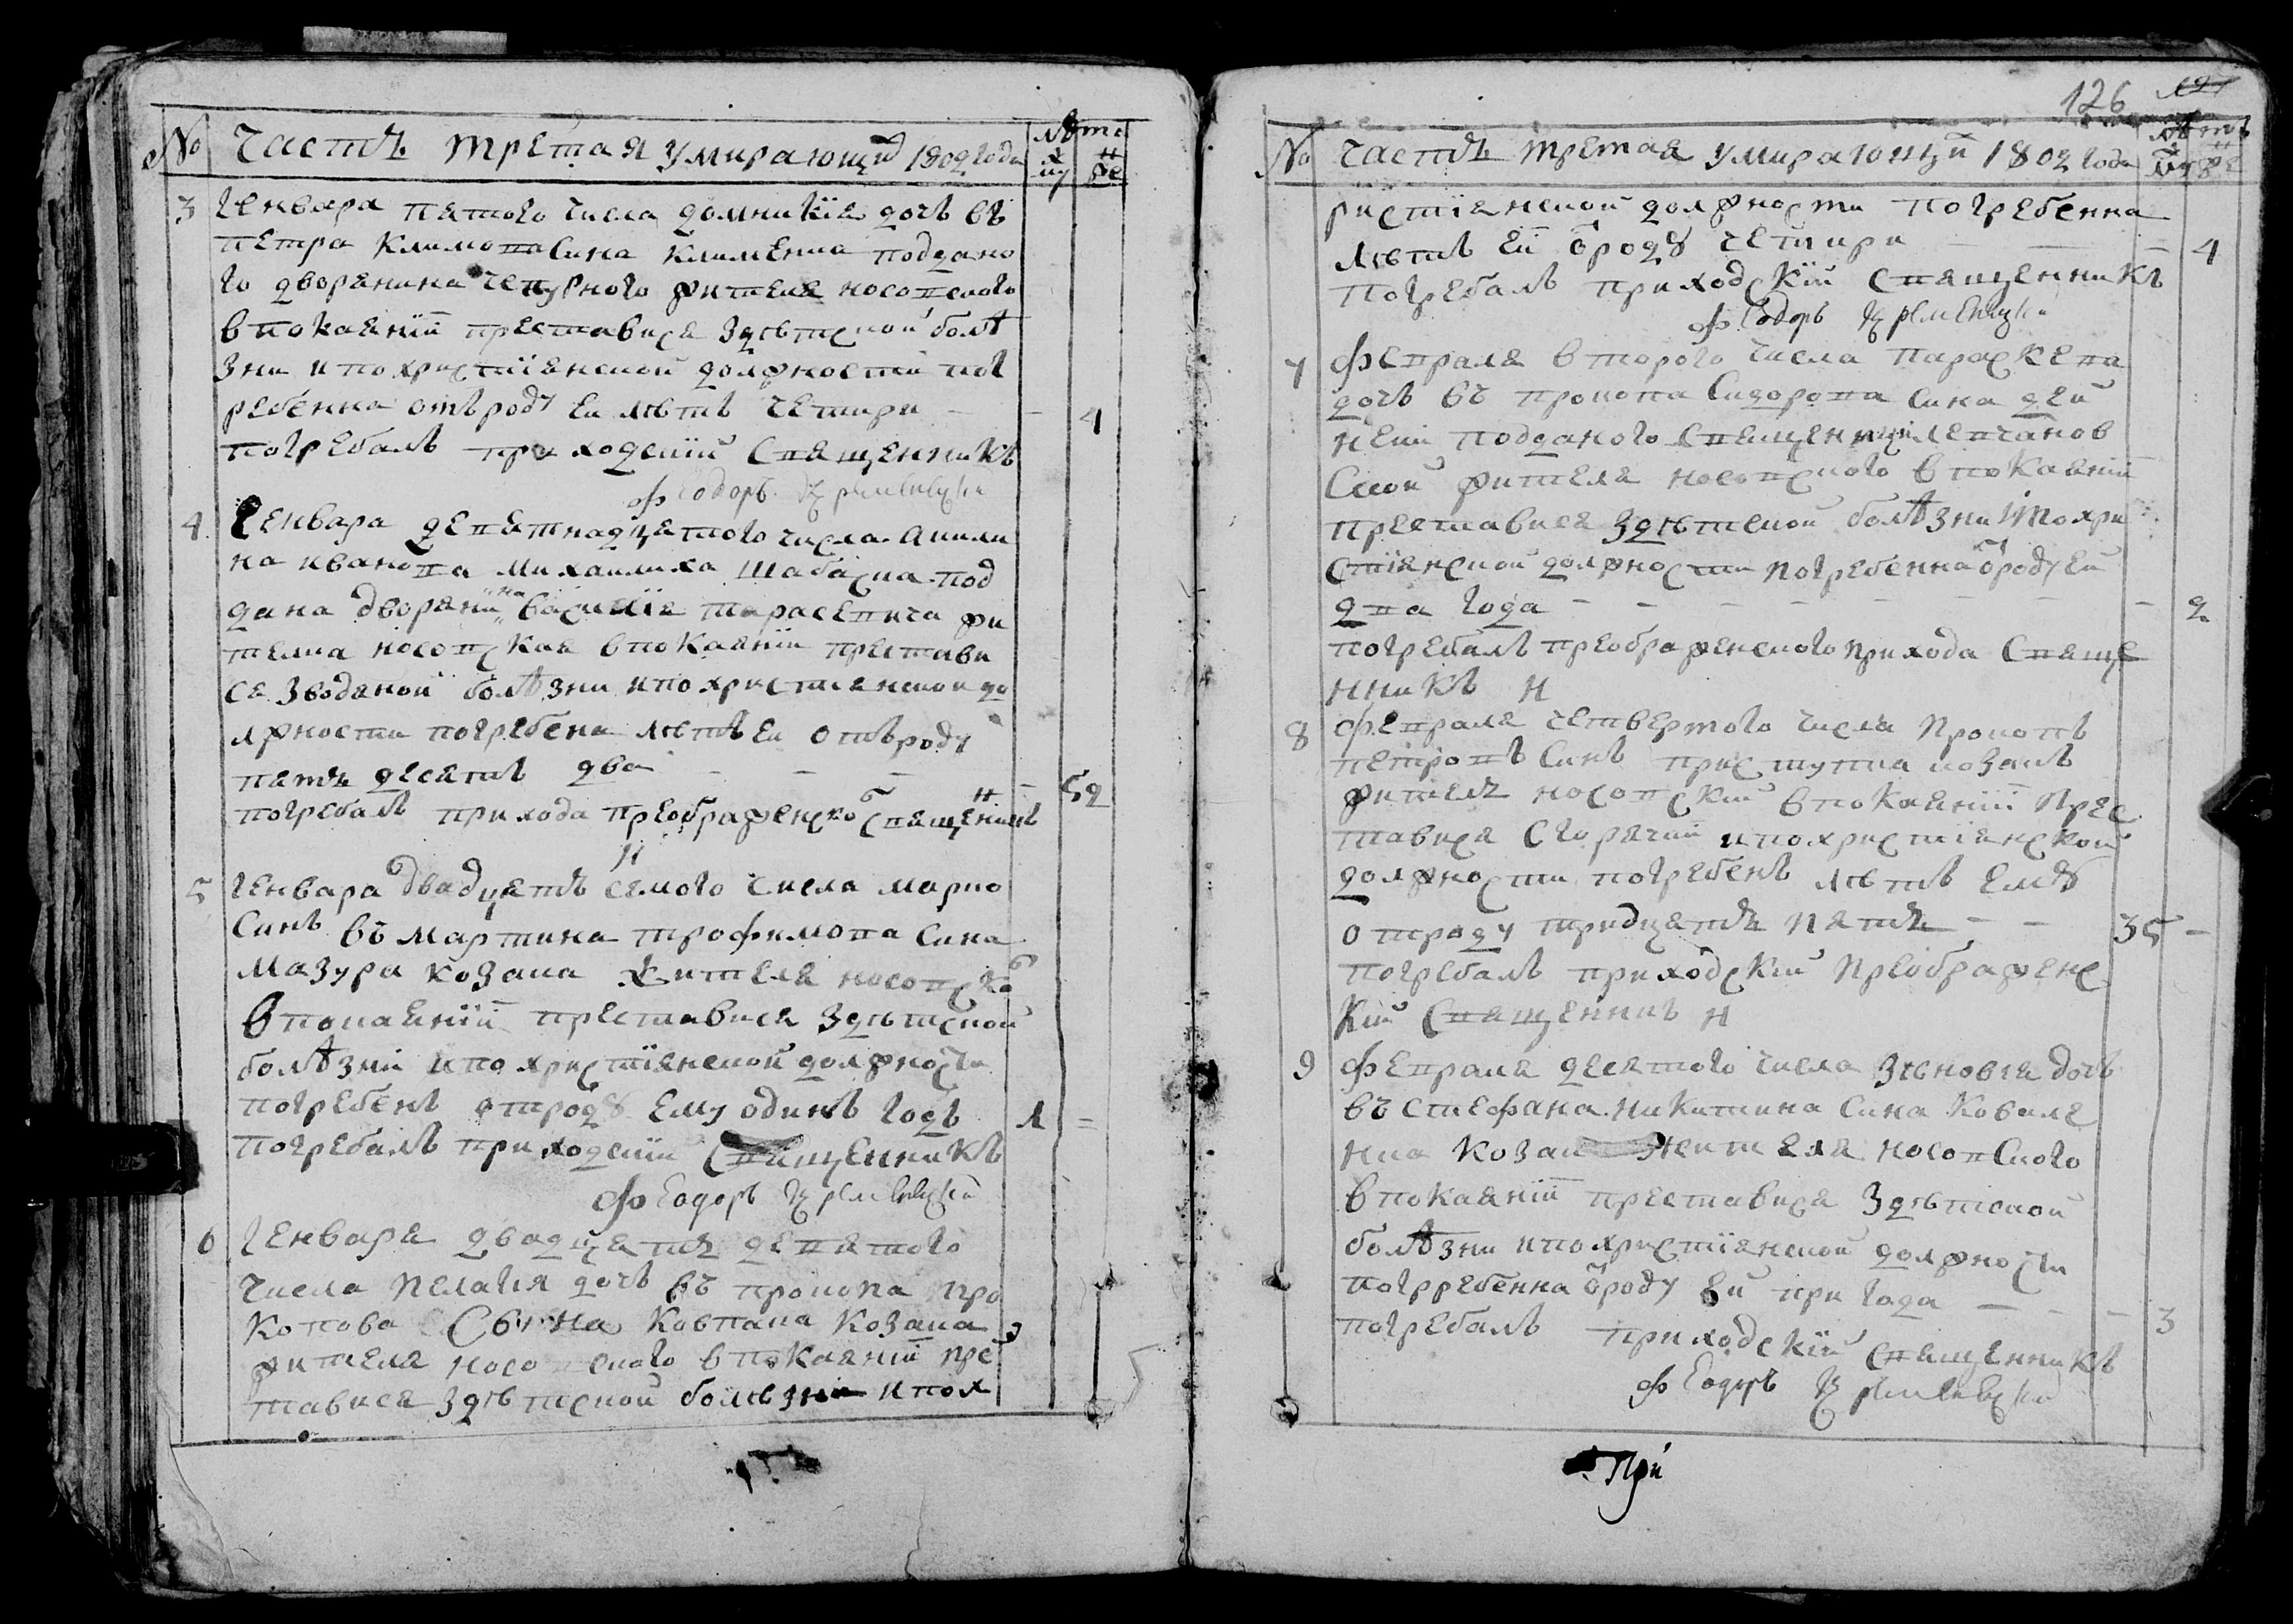 № Часть третая умирающий 1802 года
лѣта
му же
3 Генвара пятого числа домникїя дочь въ
петра Климова сина Клименка поддано
го дворянина Чепурного жителя носовского
в покаянїй преставися здѣтской болѣ
зни и по христїянской должностй пог
ребенна отъ роду ей лѣтъ четири - - 4
погребалъ приходскїй священникъ
Феодоръ
4 Генвара деветнадцетого числа Акили
на иванова михаилиха Шабаска под
дана дворянина василїя тарасевича жи
телка носовская в покаянїй престави
ся зводяной болѣзни и по християнской до
лжности погребена лѣтъ ей отъ роду
пять десятъ два - - - - 52
погребалъ прихода преображенского священикъ
Н
5 Генвара двадцеть семого числа марко
синъ въ мартина трофимова сина
мазура козака жителя носовского
в покаянїй преставися здѣтской
болѣзнй и по христїянской должности
погребенъ отроду ему одинъ годъ 1 =
погребалъ приходскїй священникъ
Феодоръ
6 Генваря двадцеть девятого
числа пелагия дочь въ прокопа про
копова сына Ковпака козака
жителя носовского в покаянїй пре
тавися здѣтской болѣзни и по х
126
№ Часть третая умирающїй 1802 года
лѣтъ
му же
ристїянской должности погребенна
лѣтъ ей ѿроду четири - - - 4
погребалъ приходскїй священникъ
Феодоръ
7 Февраля второго числа параскева
дочь въ прокопа Сидорова сина дей
неки подданого священника
ской жителя носовского в покаянїй
преставися здѣтской болѣзни и по хри
стїянской должности погребенна ѿроду ей
два года - - - - - - - 2
погребалъ преображенского прихода свяще
нникъ Н
8 Февраля четвертого числа Прокопъ
петровъ синъ приступка козакъ
житель носовскїй в покаянїй прес
тавися с горячкй и по христїянской
должности погребенъ лѣтъ ему
отроду тридцеть пять - - 35 -
погребалъ приходскїй преображенс
кїй священникъ Н
9 Февраля десятого числа Зѣновїя дочь
въ стефана никитина сина Ковале
нка козака жителя носовского
в покаянїй преставися здѣтской
болѣзни и по христїянской должности
погрребенна ѿроду ей три года - - - 3
погребалъ приходскїй священникъ
Феодоръ
При